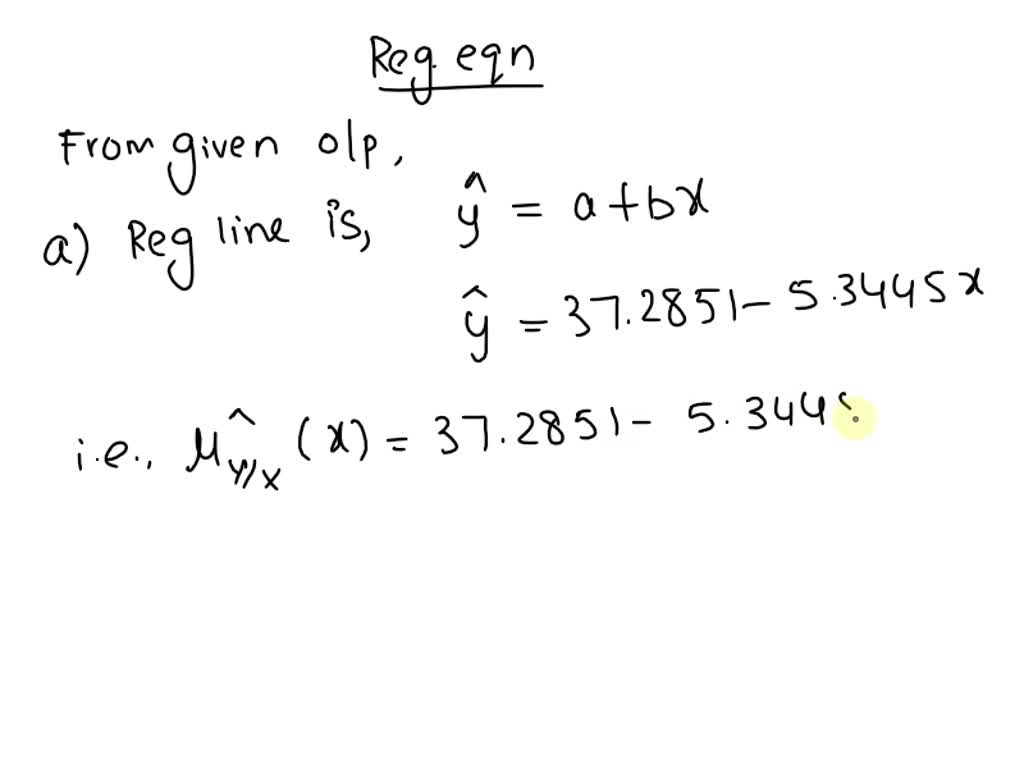 Reg. eqn
From given o/p,
a) Reg line is, ŷ = a+bx
ŷ = 37.2851 - 5.3445x
i.e., μ̂ Y/X (x) = 37.2851 - 5.344